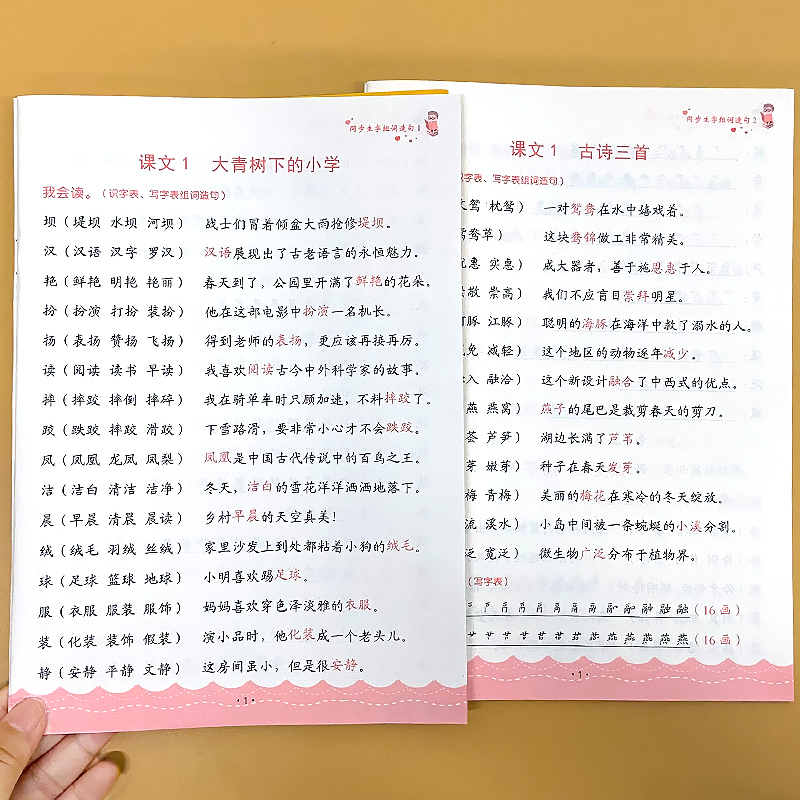 同步生字组词造句1
课文1 大青树下的小学
我会读。（识字表、写字表组词造句）
坝（堤坝 水坝 河坝） 战士们冒着倾盆大雨抢修堤坝。
汉（汉语 汉字 罗汉） 汉语展现出了古老语言的永恒魅力。
艳（鲜艳 明艳 艳丽） 春天到了，公园里开满了鲜艳的花朵。
扮（扮演 打扮 装扮） 他在这部电影中扮演一名机长。
扬（表扬 赞扬 飞扬） 得到老师的表扬，更应该再接再厉。
读（阅读 读书 早读） 我喜欢阅读古今中外科学家的故事。
摔（摔跤 摔倒 摔碎） 我在骑单车时只顾加速，不料摔跤了。
跤（跌跤 摔跤 滑跤） 下雪路滑，要非常小心才不会跌跤。
凤（凤凰 龙凤 凤梨） 凤凰是中国古代传说中的百鸟之王。
洁（洁白 清洁 洁净） 冬天，洁白的雪花洋洋洒洒地落下。
晨（早晨 清晨 晨读） 乡村早晨的天空真美！
绒（绒毛 羽绒 丝绒） 家里沙发上到处都粘着小狗的绒毛。
球（足球 篮球 地球） 小明喜欢踢足球。
服（衣服 服装 服饰） 妈妈喜欢穿色泽淡雅的衣服。
装（化装 装饰 假装） 演小品时，他化装成一个老头儿。
静（安静 平静 文静） 这房间虽小，但是很安静。
·1·
同步生字组词造句2
课文1 古诗三首
字表、写字表组词造句）
鸳 枕鸳） 一对鸳鸯在水中嬉戏着。
鸳鸯草） 这块鸯锦做工非常精美。
惠 实惠） 成大器者，善于施恩惠于人。
崇敬 崇高） 我们不应盲目崇拜明星。
豚 江豚） 聪明的海豚在海洋中救了溺水的人。
免 减轻） 这个地区的动物逐年减少。
入 融洽） 这个新设计融合了中西式的优点。
燕 燕窝） 燕子的尾巴是裁剪春天的剪刀。
芦荟 芦笋） 湖边长满了芦苇。
芽 嫩芽） 种子在春天发芽。
梅 青梅） 美丽的梅花在寒冷的冬天绽放。
流 溪水） 小岛中间被一条蜿蜒的小溪分割。
泛 宽泛） 微生物广泛分布于植物界。
（写字表）
融 融（16画）
燕 燕 燕 燕（16画）
·1·